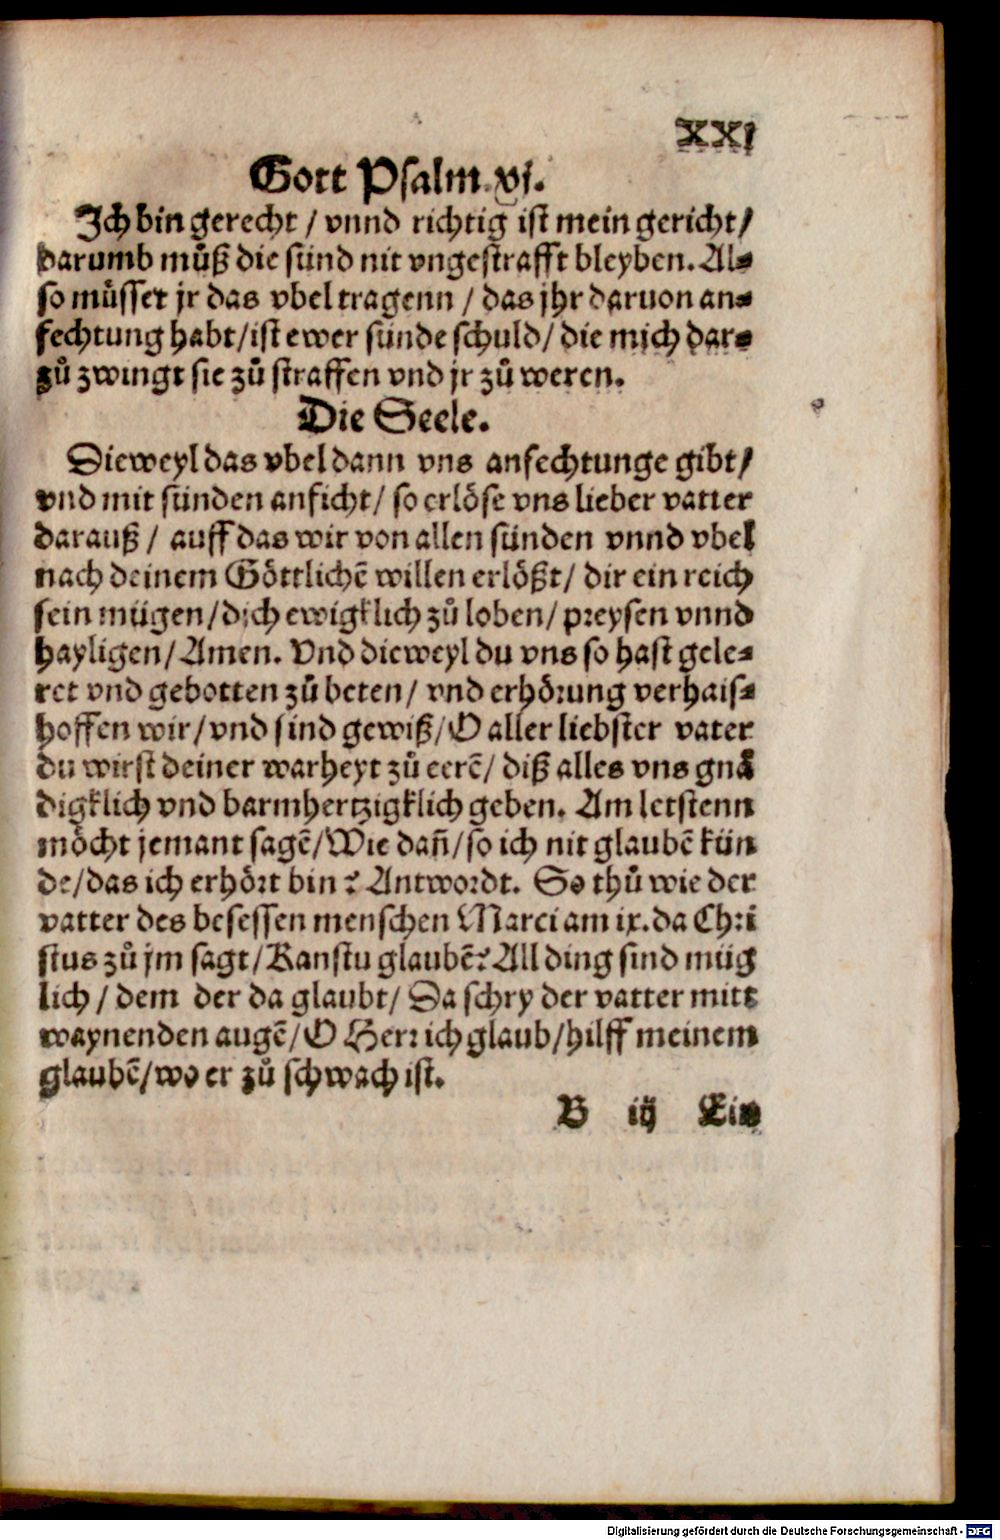 XXj
Gott Psalm. vj.
Jch bin gerecht / vnnd richtig ist mein gericht /
darumb můß die sünd nit vngestrafft bleyben. Al⸗
so můsset jr das vbel tragenn / das jhr daruon an⸗
fechtung habt / ist ewer sünde schuld / die mich dar⸗
zů zwingt sie zů straffen vnd jr zů weren.
Die Seele.
Dieweyl das vbel dann vns anfechtunge gibt /
vnd mit sünden anficht / so erlöse vns lieber vatter
darauß / auff das wir von allen sünden vnnd vbel
nach deinem Göttlichē willen erlößt / dir ein reich
sein mügen / dich ewigklich zů loben / preysen vnnd
hayligen / Amen. Vnd dieweyl du vns so hast gele⸗
ret vnd gebotten zů beten / vnd erhörung verhais⸗
hoffen wir / vnd sind gewiß / O aller liebster vater
du wirst deiner warheyt zů eerē / diß alles vns gnå
digklich vnd barmhertzigklich geben. Am letstenn
möcht jemant sagē / Wie dañ / so ich nit glaubē kün
de / das ich erhört bin? Antwordt. So thů wie der
vatter des besessen menschen Marci am ix. da Chri
stus zů jm sagt / Kanstu glaubē? All ding sind müg
lich / dem der da glaubt / Da schry der vatter mitt
waynenden augē / O Herr ich glaub / hilff meinem
glaubē / wo er zů schwach ist.
B iij Ein
Digitalisierung gefördert durch die Deutsche Forschungsgemeinschaft - DFG